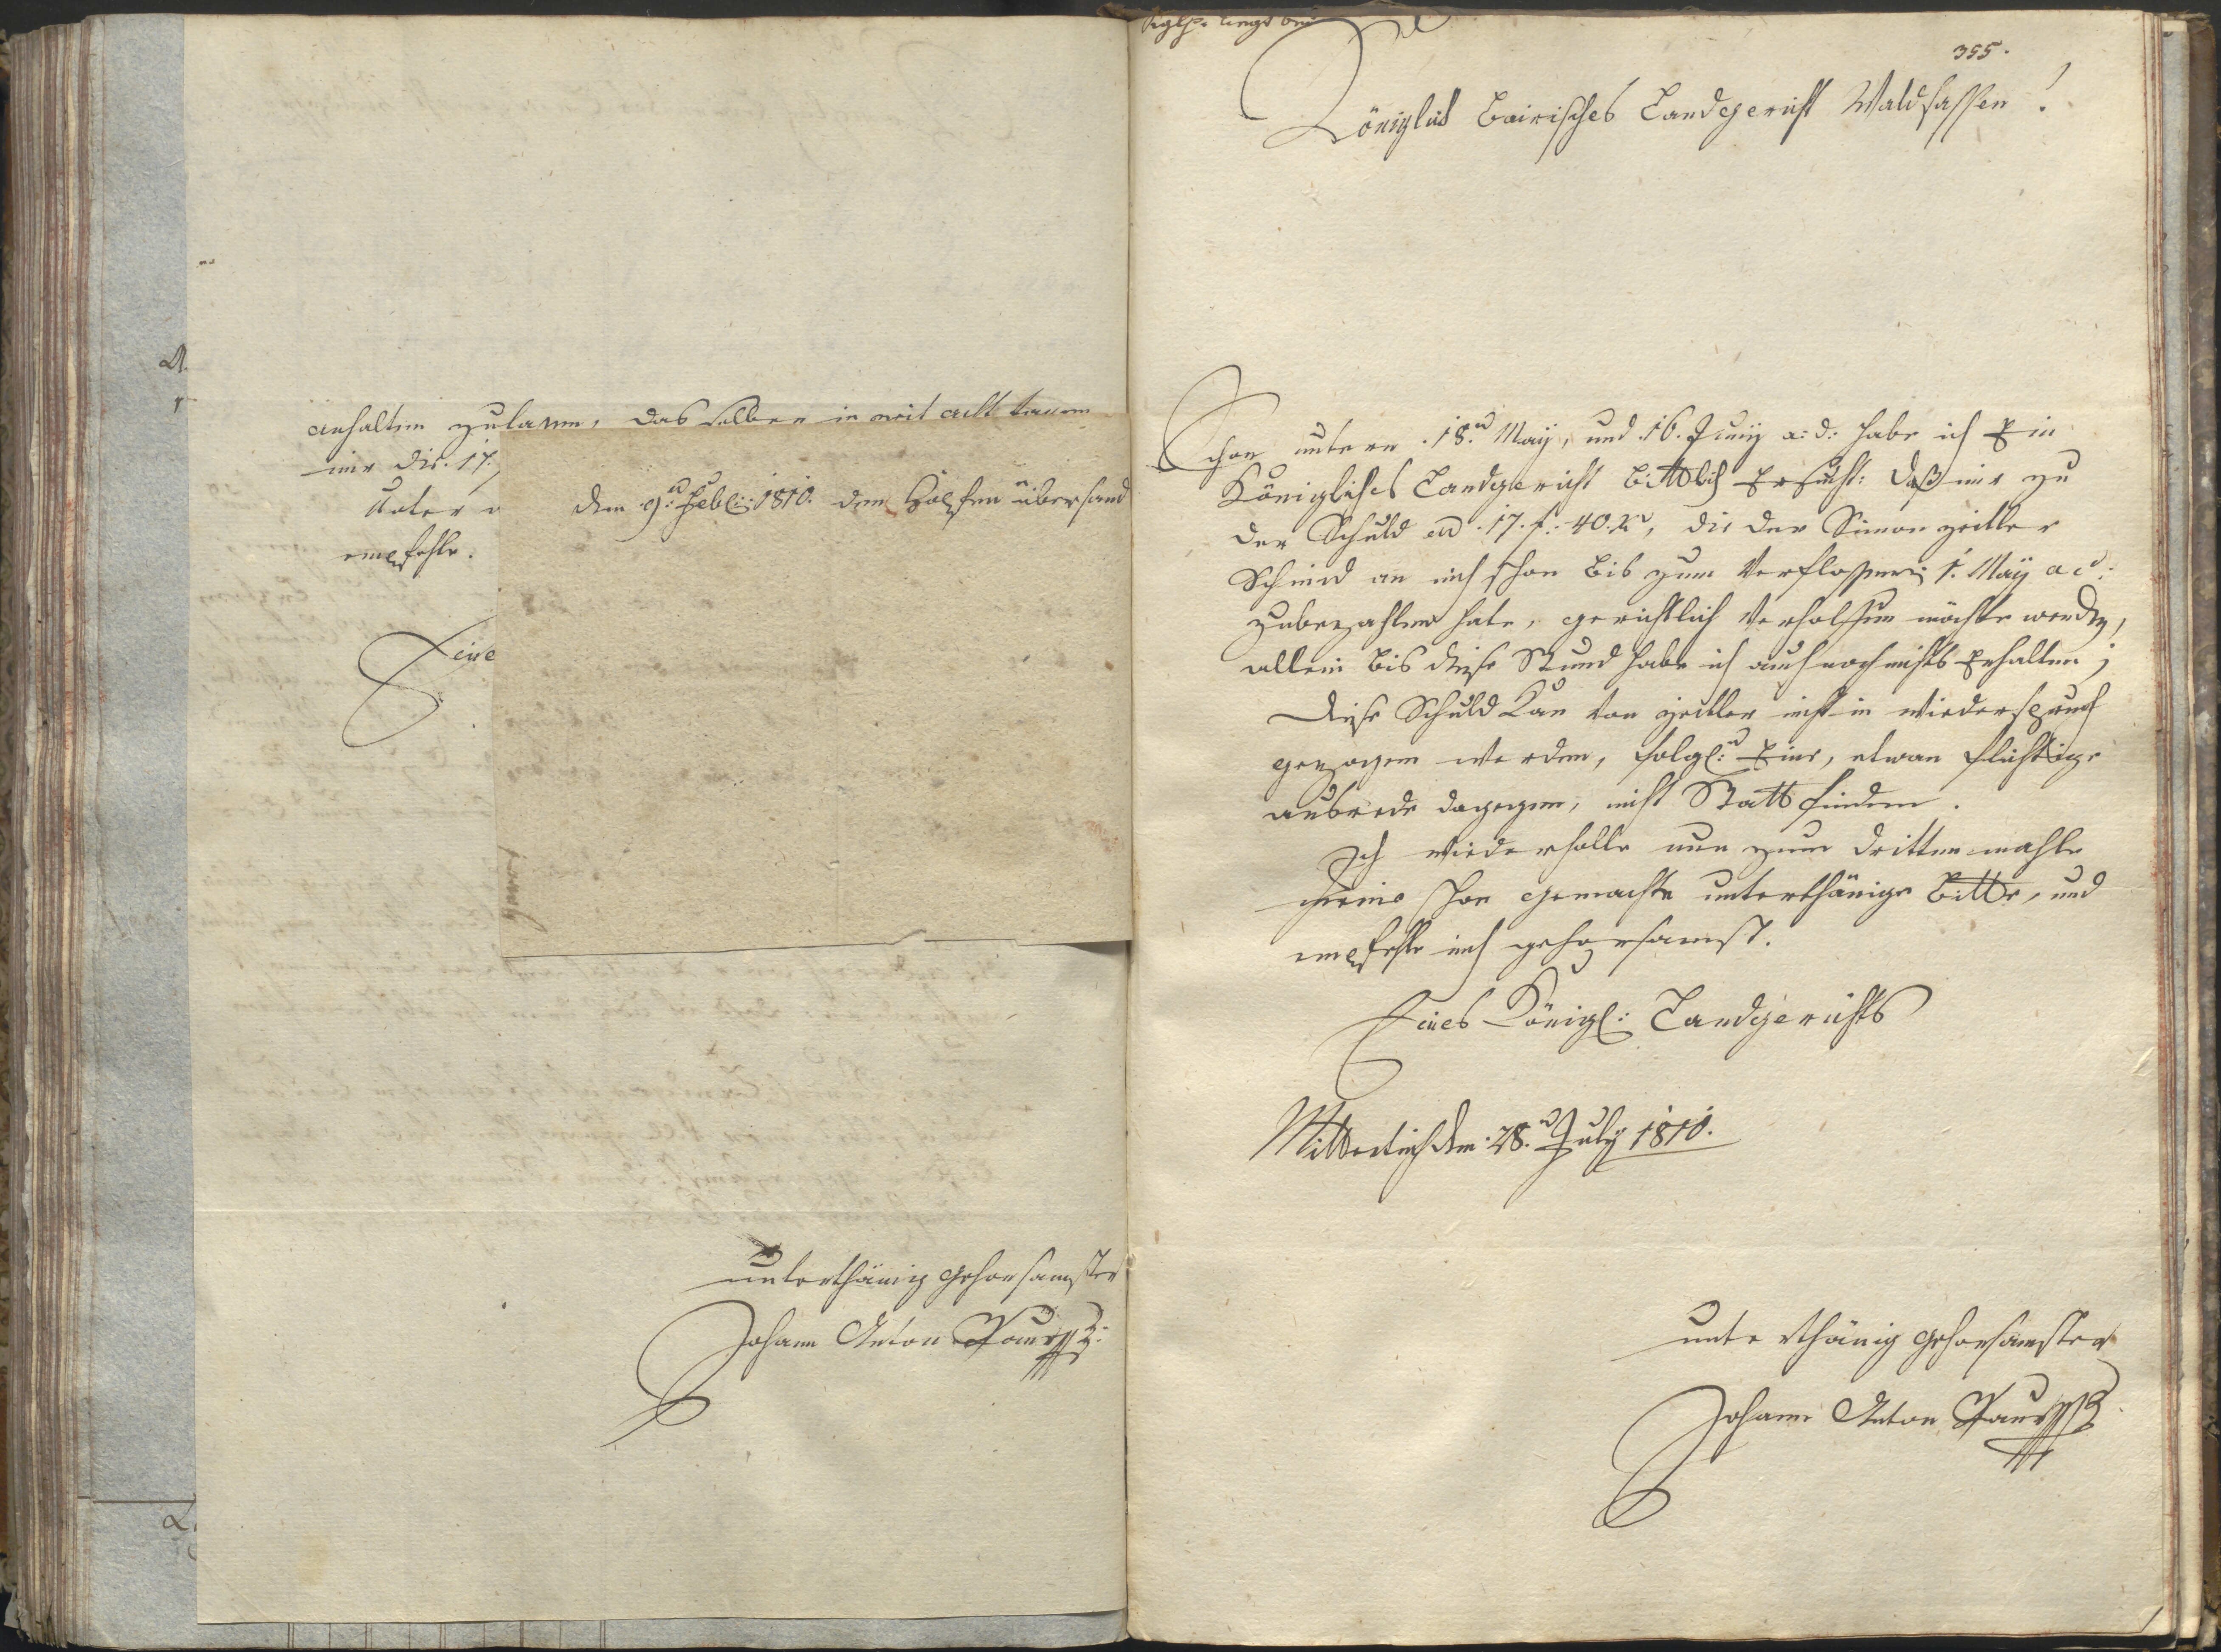 anhalten zulassen, das selber in zeit acht tagen
mir die 17.
Unter
empfehle.
Eine
den 9:ⁿ Febl: 1810. dem Holzhen übersand
unterthänig gehorsamster
Johann Anton
355.
Königlich Bairisches Landgericht Waldsassen!
Schon untern 18.ⁿ May, und 16. Juny a: d: habe ich Ein
Königliches Landgericht bittlich Ersucht: daß mir zu
der Schuld ad 17. f: 40. xr, die der Simon Zeitler
Schmid an mich schon bis zum Verflossenen 1. May a c:
zubezahlen hate, gerichtlich Verholffen möchte werden,
allein bis diese Stund habe ich auch noch nichts Erhalten;
diese Schuld Kan von Zeitler nicht in wiederspruch
gezogen werden, folgl: Eine, etwan flichtige
ausrede dagegen, nicht Statt finden.
Ich wiederholle nun zum dritten mahle
meine schon gemachte unterthänige Bitte, und
empfehle mich gehorsamst.
Eines Königl: Landgerichts
Mitterteich den 28.ⁿ July 1810.
unterthänig gehorsamster
Johann Anton